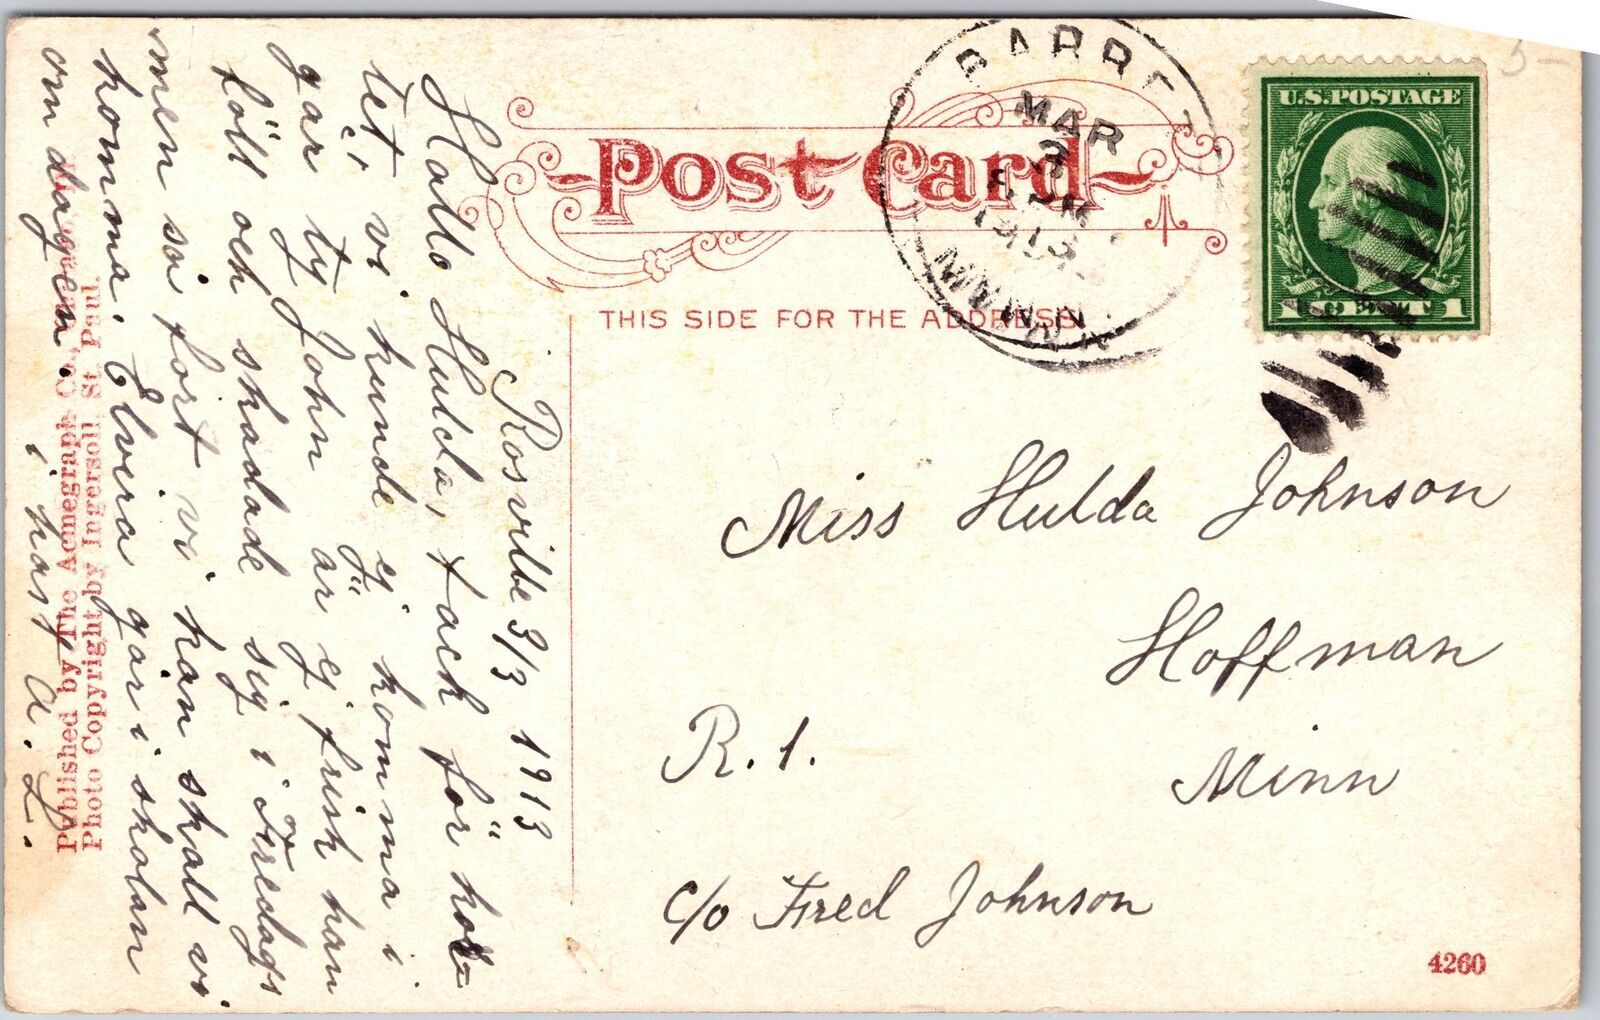 Post Card
THIS SIDE FOR THE ADDRESS
BARRET
MAR
3
PM
1913
MINN.
U.S. POSTAGE
1 CENT 1
Rosville 3/3 1913
Hallo Hulda, tack för kor-
tet, vi kunde ej komma i
går ty John är ej frisk han
föll och skadade sig i Fredags
men så fort vi kan skall vi
komma, Elvera går i skolan
om dagen.
i hast A. L.
Miss Hulda Johnson
Hoffman
R. 1. Minn
c/o Fred Johnson
4260
Published by The Acmegraph Co.,
Photo Copyright by Ingersoll, St. Paul